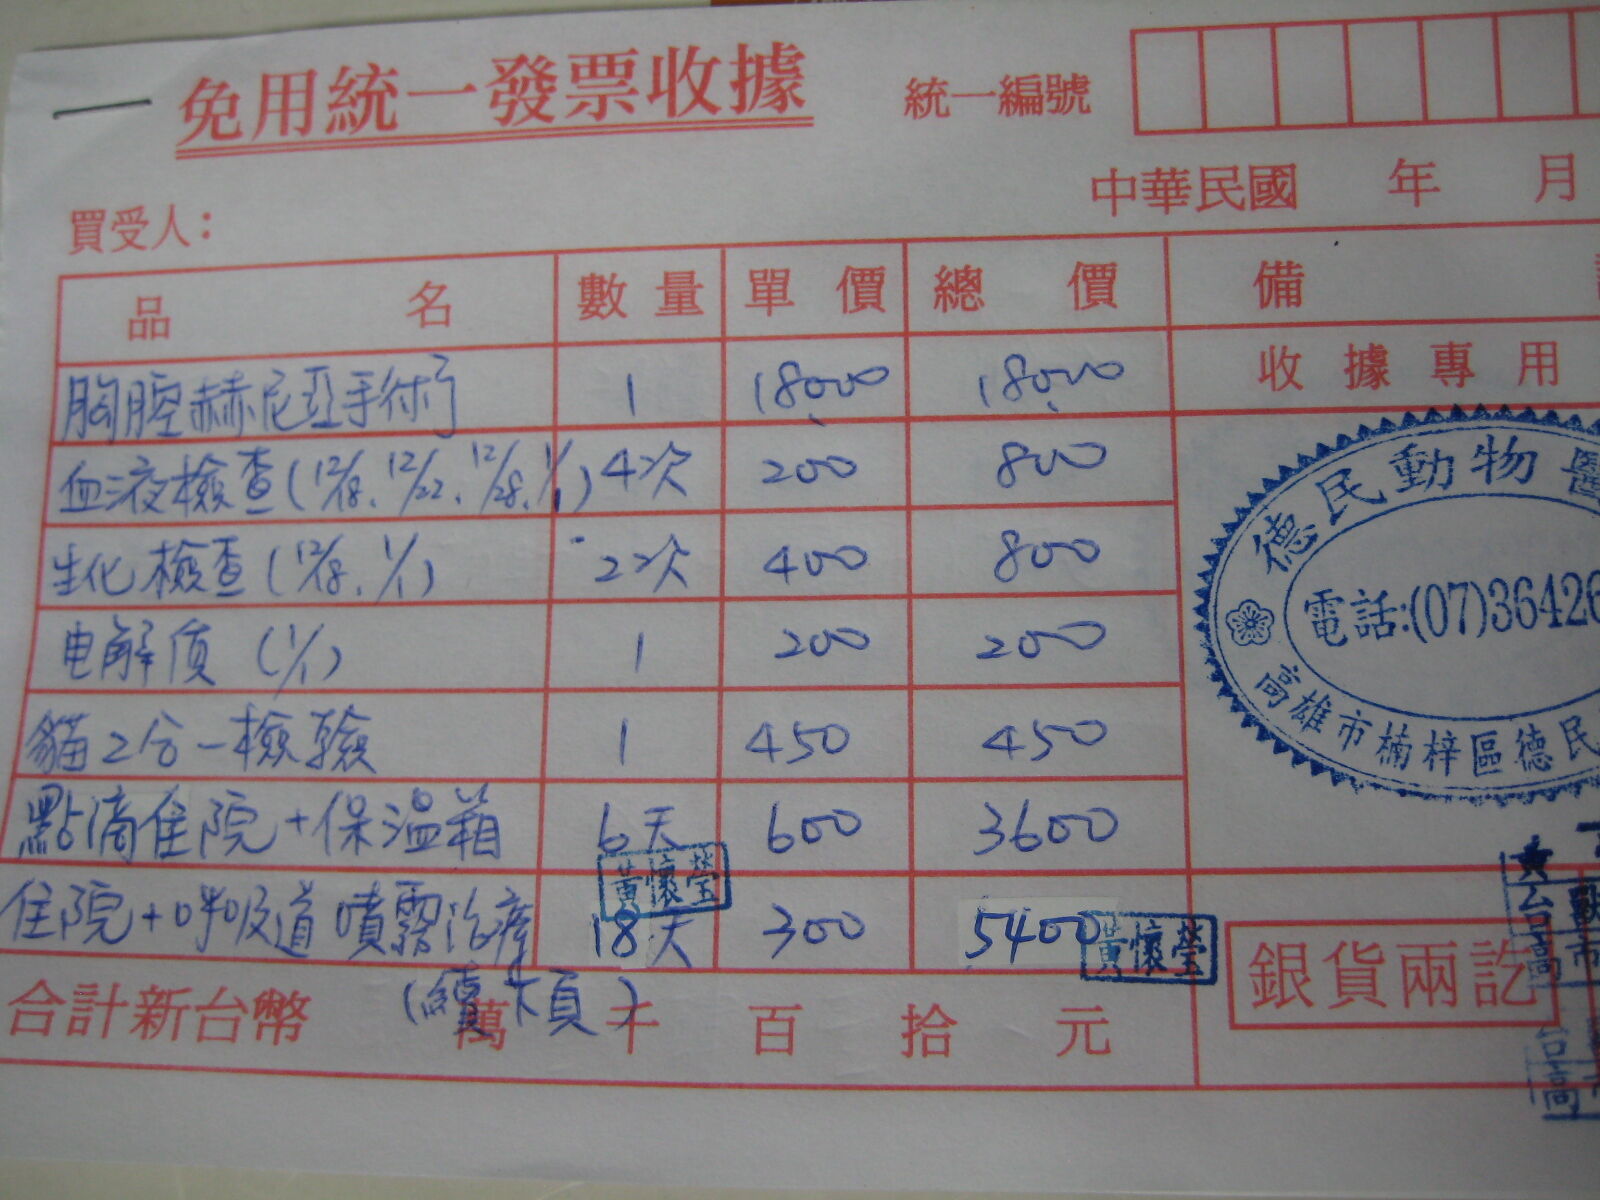 免用統一發票收據 統一編號
中華民國 年 月
買受人:
品名 數量 單價 總價 備
胸腔赫尼亞手術 1 18000 18000 收據專用
血液檢查(12/18、12/22、12/28、1/1) 4次 200 800
生化檢查(12/18、1/1) 2次 400 800
电解质 (1/1) 1 200 200
貓2合一檢驗 1 450 450
點滴住院+保温箱 6天 600 3600
黃懷瑩
住院+呼吸道噴霧治療 18天 300 5400 黃懷瑩
(續下頁)
合計新台幣 萬 千 百 拾 元
銀貨兩訖
德民動物醫
電話:(07)36426
高雄市楠梓區德民